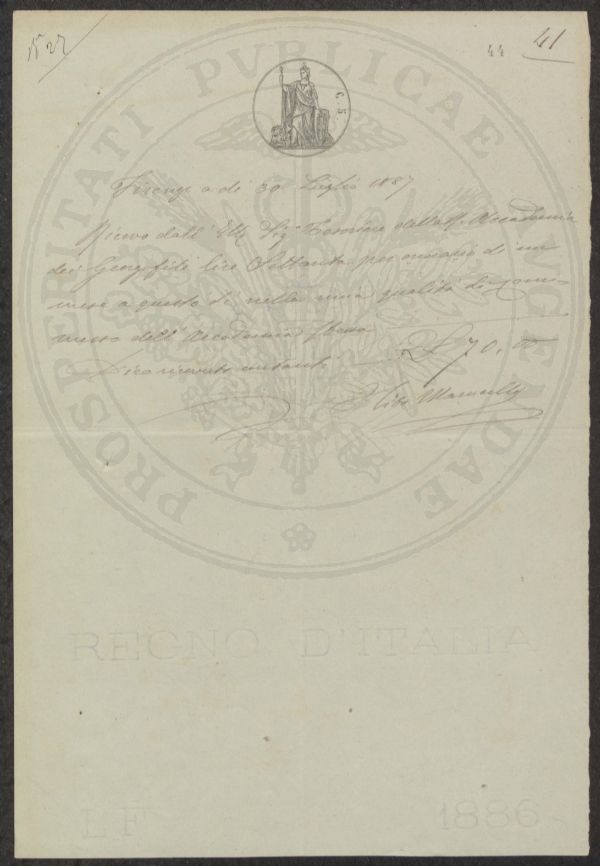 N° 27
44
41
PROSPERITATI PVBLICAE AVGENDAE
C. 5
Firenze a dì 30 Luglio 1887
Ricevo dall' Ill. Sig. Tesoriere della R. Accademia
dei Georgofili lire Settanta per onorario di un
mese a questo dì nella mia qualità di Com-
messo dell' Accademia stessa
Dico ricevute contanti L 70, 00
REGNO D'ITALIA
LF 1886